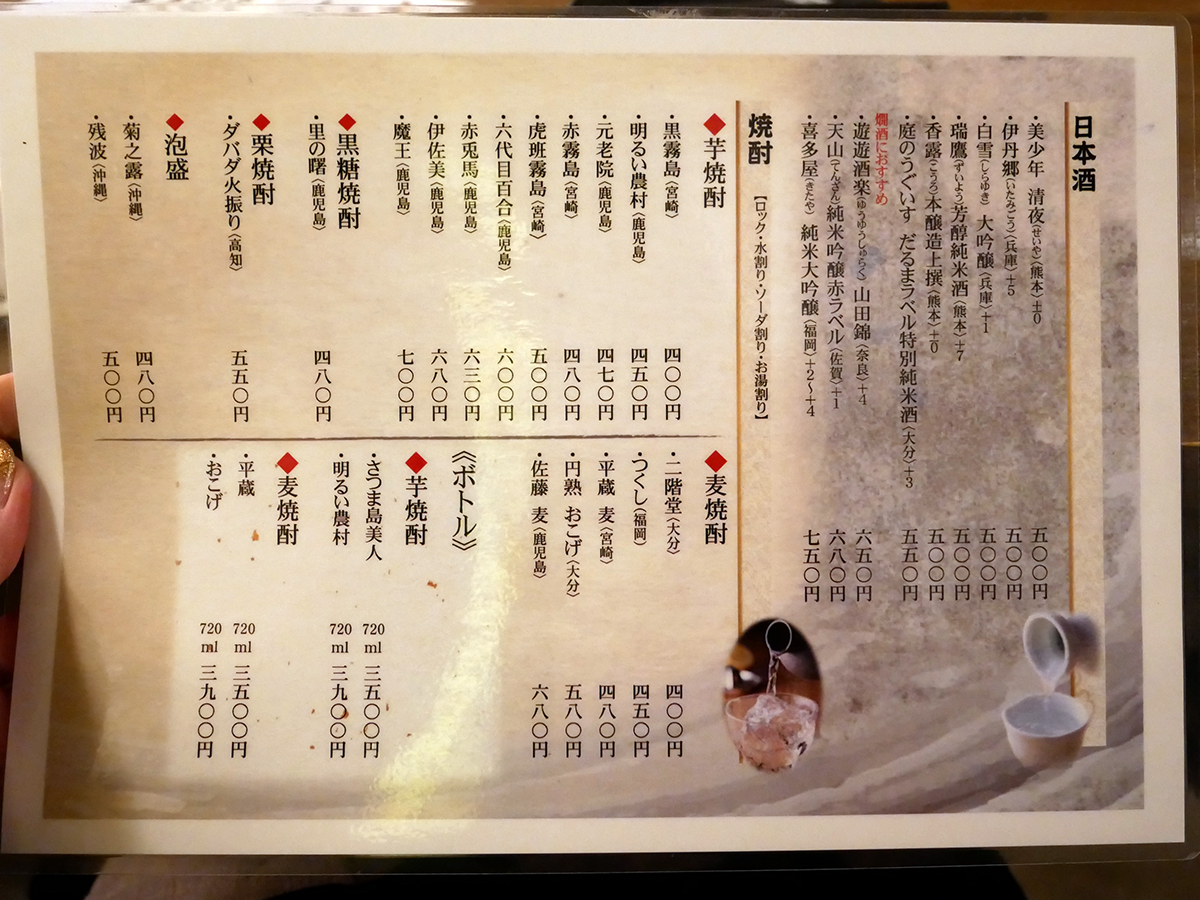 日本酒
・美少年 清夜(せいや)〈熊本〉±0 五〇〇円
・伊丹郷(いたみごう)〈兵庫〉+5 五〇〇円
・白雪(しらゆき) 大吟醸〈兵庫〉+1 五〇〇円
・瑞鷹(ずいよう)芳醇純米酒〈熊本〉+7 五〇〇円
・香露(こうろ)本醸造上撰〈熊本〉±0 五〇〇円
・庭のうぐいす だるまラベル特別純米酒〈大分〉+3 五五〇円
燗酒におすすめ
・遊遊酒楽(ゆうゆうしゅらく) 山田錦〈奈良〉+4 六五〇円
・天山(てんざん)純米吟醸赤ラベル〈佐賀〉+1 六八〇円
・喜多屋(きたや) 純米大吟醸〈福岡〉+2～+4 七五〇円
焼酎 【ロック・水割り・ソーダ割り・お湯割り】
◆芋焼酎
・黒霧島〈宮崎〉 四〇〇円
・明るい農村〈鹿児島〉 四五〇円
・元老院〈鹿児島〉 四七〇円
・赤霧島〈宮崎〉 四八〇円
・虎斑霧島〈宮崎〉 五〇〇円
・六代目百合〈鹿児島〉 六〇〇円
・赤兎馬〈鹿児島〉 六三〇円
・伊佐美〈鹿児島〉 六八〇円
・魔王〈鹿児島〉 七〇〇円
◆黒糖焼酎
・里の曙〈鹿児島〉 四八〇円
◆栗焼酎
・ダバダ火振り〈高知〉 五五〇円
◆泡盛
・菊之露〈沖縄〉 四八〇円
・残波〈沖縄〉 五〇〇円
◆麦焼酎
・二階堂〈大分〉 四〇〇円
・つくし〈福岡〉 四五〇円
・平蔵 麦〈宮崎〉 四八〇円
・円熟 おこげ〈大分〉 五八〇円
・佐藤 麦〈鹿児島〉 六八〇円
《ボトル》
◆芋焼酎
・さつま島美人 720ml 三五〇〇円
・明るい農村 720ml 三九〇〇円
◆麦焼酎
・平蔵 720ml 三五〇〇円
・おこげ 720ml 三九〇〇円